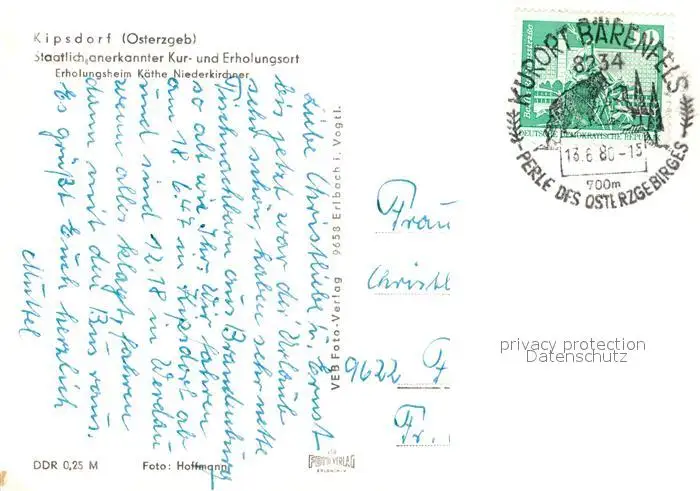 Kipsdorf (Osterzgeb)
Staatlich anerkannter Kur- und Erholungsort
Erholungsheim Käthe Niederkirchner
Liebe Christliebe u. Ernst
bis jetzt war der Urlaub
sehr schön, haben sehr nette
Tischnachbarn aus Brandenburg
so alt wie Ihr. Wir fahren
am 18.6.47 in Kipsdorf ab
und sind 12.18 in Werdau
wenn alles klappt, fahren
dann mit den Bus raus.
Es grüßt Euch herzlich
Muttel
VEB Foto-Verlag 9658 Erlbach i. Vogtl.
DDR 0,25 M
Foto: Hoffmann
FOTO-VERLAG
ERLBACH i. V.
10
DEUTSCHE DEMOKRATISCHE REPUBLIK
KURORT BÄRENFELS
8234
13.6.80-15
700m
PERLE DES OSTERZGEBIRGES
Frau
Christl
9622 F
Fr.
privacy protection
Datenschutz